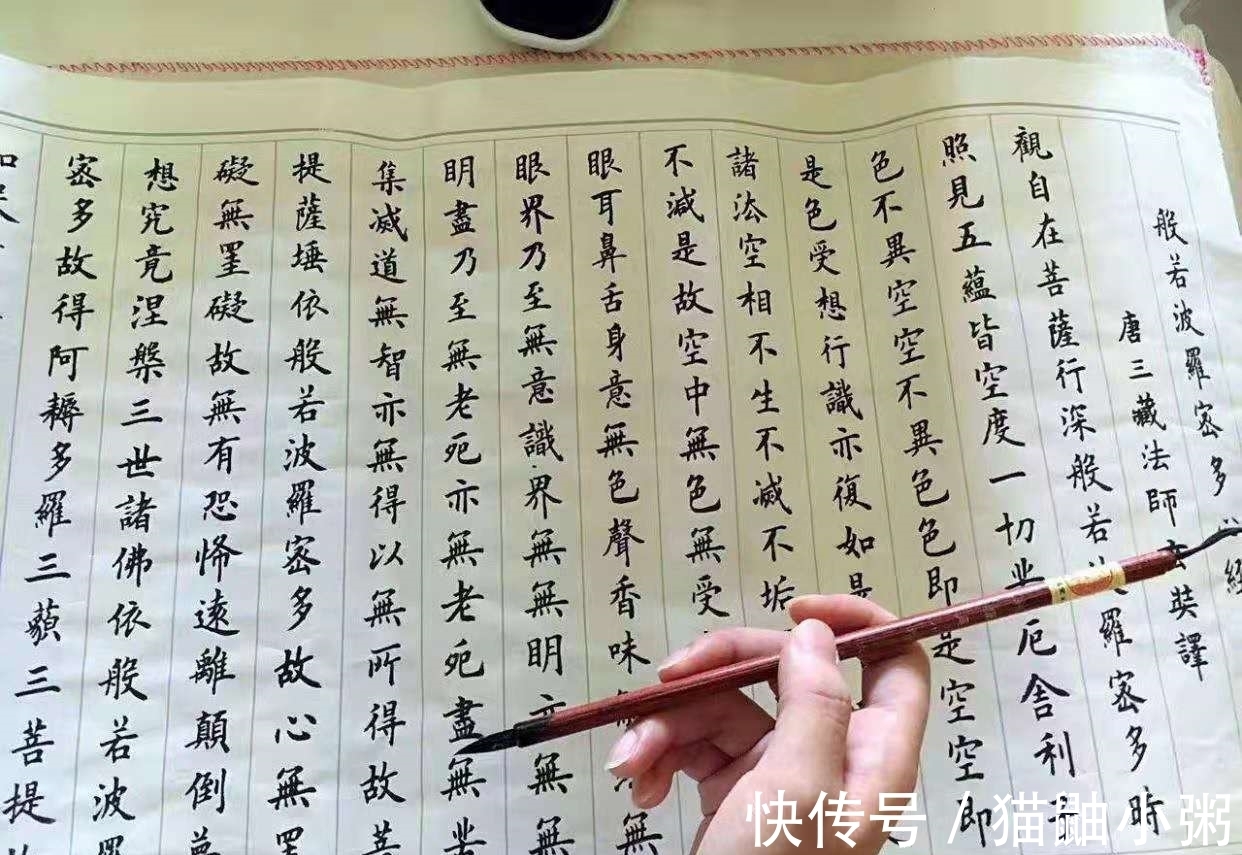 般若波羅密多心經
唐三藏法師玄奘譯
觀自在菩薩行深般若波羅密多時
照見五蘊皆空度一切苦厄舍利
色不異空空不異色色即是空空即
是色受想行識亦復如是
諸法空相不生不滅不垢
不減是故空中無色無受
眼耳鼻舌身意無色聲香味無
眼界乃至無意識界無無明亦無無
明盡乃至無老死亦無老死盡無苦
集滅道無智亦無得以無所得故菩
提薩埵依般若波羅密多故心無罣
礙無罣礙故無有恐怖遠離顛倒夢
想究竟涅槃三世諸佛依般若波羅
密多故得阿耨多羅三藐三菩提
快传号/猫鼬小粥